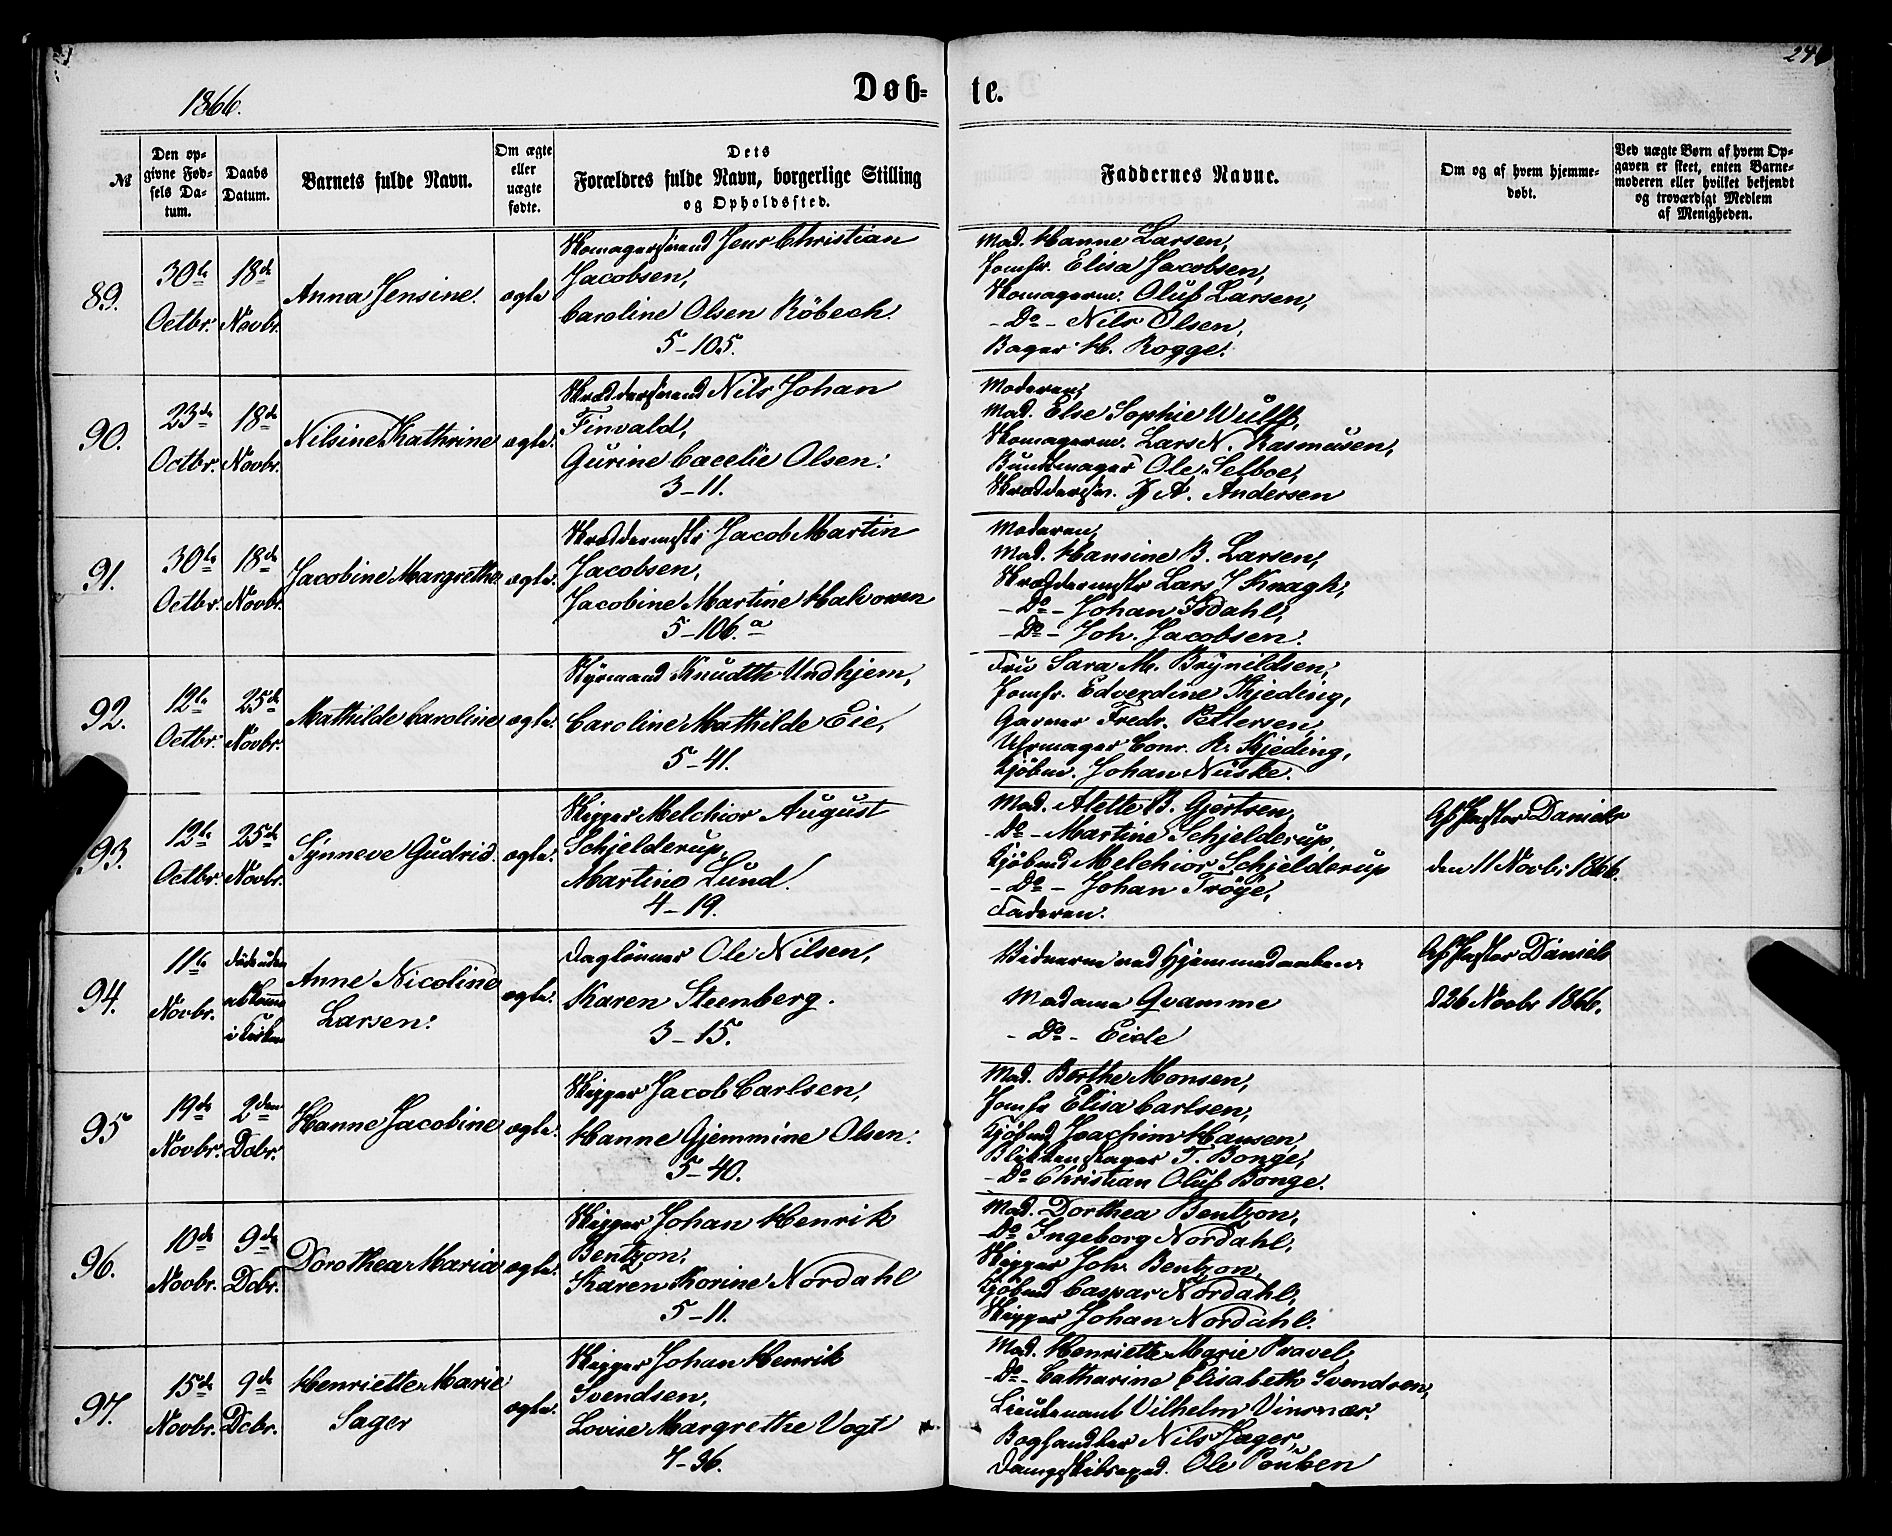 1866.
Døb-
te.
24
№
Den op-
givne Fød-
sels Da-
tum.
Daabs
Datum.
Barnets fulde Navn.
Om ægte
eller
uægte
fødte.
Dets
Forældres fulde Navn, borgerlige Stilling
og Opholdssted.
Faddernes Navne.
Om og af hvem hjemme-
døbt.
Ved uægte Børn af hvem Op-
gaven er skeet, enten Barne-
moderen eller hvilket bekjendt
og troværdigt Medlem
af Menigheden.
89.
30te
Octbr.
18de
Novbr.
Anna Jensine.
ægte
Skomagersvend Jens Christian
Jacobsen,
Caroline Olsen Röbech
5-105.
Mad. Hanne Larsen,
Jomfr. Elisa Jacobsen,
Skomagerm. Oluf Larsen,
- Do - Nils Olsen,
Bager H. Rogge.
90.
23de
Octbr.
18de
Novbr.
Nilsine Kathrine
ægte.
Skræddersvend Nils Johan
Finvald,
Gurine Cacelie Olsen.
3-11.
Moderen,
Mad. Else Sophie Wulff,
Skomagerm. Lars N. Rasmusen,
Buntmager Ole Selboe,
A. Andersen
91.
30te
Octbr.
18de
Novbr.
Jacobine Margrethe
ægte.
Skræddermestr. Jacob Martin
Jacobsen,
Jacobine Martine Halvorsen
5-106.a
Moderen,
Mad. Hansine B. Larsen,
Skræddermestr Lars J Knagh,
- Do - Johan Isdahl,
- Do - Joh. Jacobsen.
92.
12te
Octbr.
25de
Novbr.
Mathilde Caroline
ægte.
Styrmand Knudth Undhjem,
Caroline Mathilde Eie,
5-41.
Fru Sara M. Brynildsen,
Jomfr. Edverdine Kjeding,
Garver Fredr. Pettersen,
Uhrmager Conr. R. Kjeding,
Kjøbm. Johan Nüske.
93.
12te
Octbr.
25de
Novbr.
Synneve Gudrid.
ægte.
Skipper Melchior August
Schjelderup,
Martine Lund.
4-19.
Mad. Alette B. Gjertsen,
- Do - Martine Schjelderup,
Kjøbmd Melchior Schjelderup
- Do - Johan Tröye,
Faderen.
Af Pastor Daniels
den 11 Novbr 1866.
94.
11te
Novbr.
Døde uden
at komme
i Kirken
Anne Nicoline
Larsen.
ægte.
Daglönner Ole Nilsen,
Karen Steenberg.
3-15.
Vidnerne ved Hjemmedaaben.
Madame Qvamme
- Do - Eide
Af Pastor Daniels
d 26 Novbr 1866.
95
19de
Novbr.
2den
Dcbr.
Hanne Jacobine
ægte.
Skipper Jacob Carlsen,
Hanne Gjemmine Olsen.
5-40.
Mad. Berthe Monsen,
Jomfr Elisa Carlsen,
Kjøbmd Joachim Hansen,
Blikkenslager T. Bonge,
- Do Christian Oluf Bonge.
96.
10de
Novbr.
9de
Dcbr.
Dorothea Maria
ægte.
Skipper Johan Henrik
Bentzon,
Karen Korine Nordahl
5-11.
Mad. Dorthea Bentzon,
- Do Ingeborg Nordahl,
Skipper Joh. Bentzon,
Kjøbmd Caspar Nordahl,
Skipper Johan Nordahl.
97.
15de
Novbr.
9de
Dcbr.
Henriette Marie
Sager
ægte.
Skipper Johan Henrik
Svendsen,
Lovise Margrethe Vogt
7-36.
Mad. Henriette Marie Pravel
- Do - Catharine Elisabeth Svendsen,
Lieutenant Vilhelm Vinsnær,
Boghandler Nils Jæger,
Dampskibsexped. Ole Poulsen